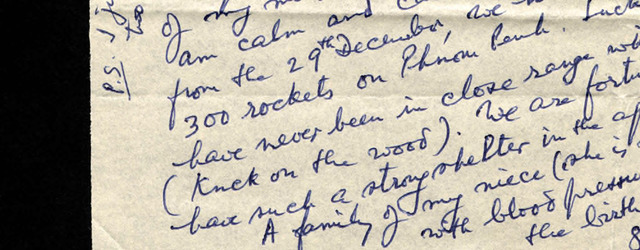 of my
am calm and
from the 29th December, we
300 rockets on Phnom Penh. Luck
have never been in close range wi
(Knck on the wood). We are fort
have such a strong shelter in the ap
A family of my niece (she is
with blood pressu
the birth
P.S. I